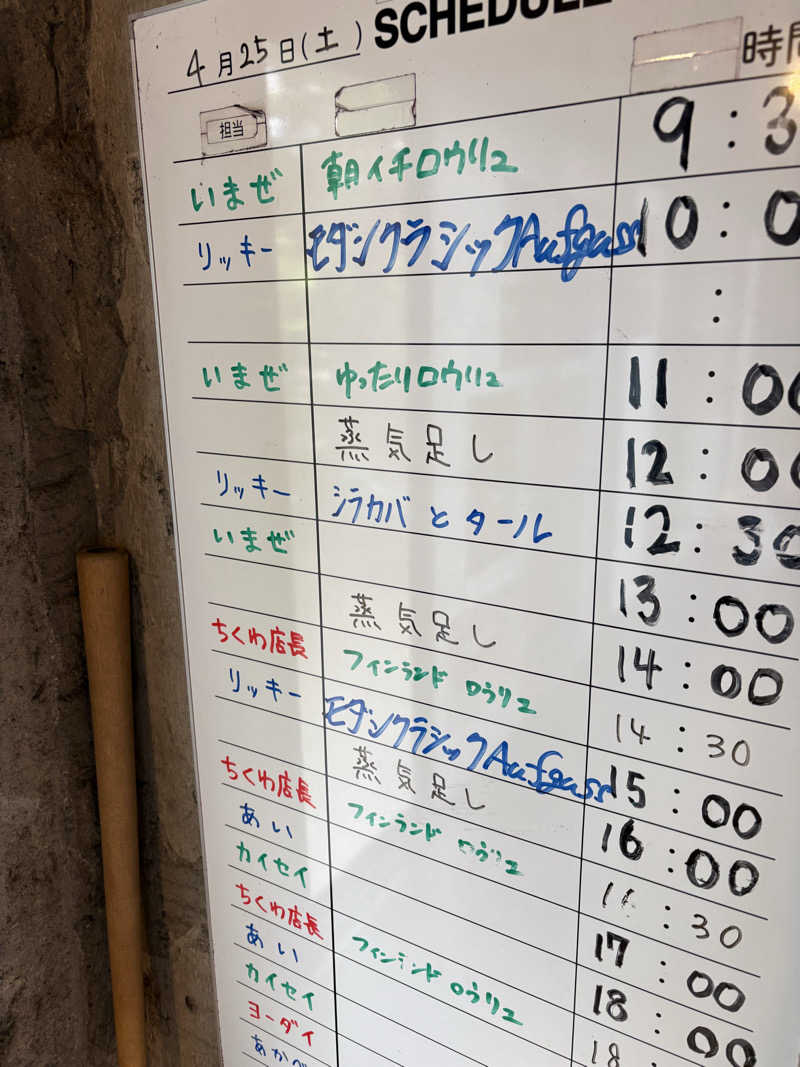 4月25日(土) SCHEDULE
担当 時間
いまぜ 朝イチロウリュ 9:3
リッキー モダンクラシックAufguss 10:0
:
いまぜ ゆったりロウリュ 11:00
蒸気足し 12:00
リッキー シラカバとタール 12:30
いまぜ 13:00
蒸気足し 14:00
ちくわ店長 フィンランド ロウリュ 14:30
リッキー モダンクラシックAufguss 15:00
蒸気足し 16:00
ちくわ店長 フィンランド ロウリュ 16:30
あい 17:00
カイセイ 18:00
ちくわ店長 フィンランド ロウリュ 18
あい
カイセイ
ヨーダイ
あかべ